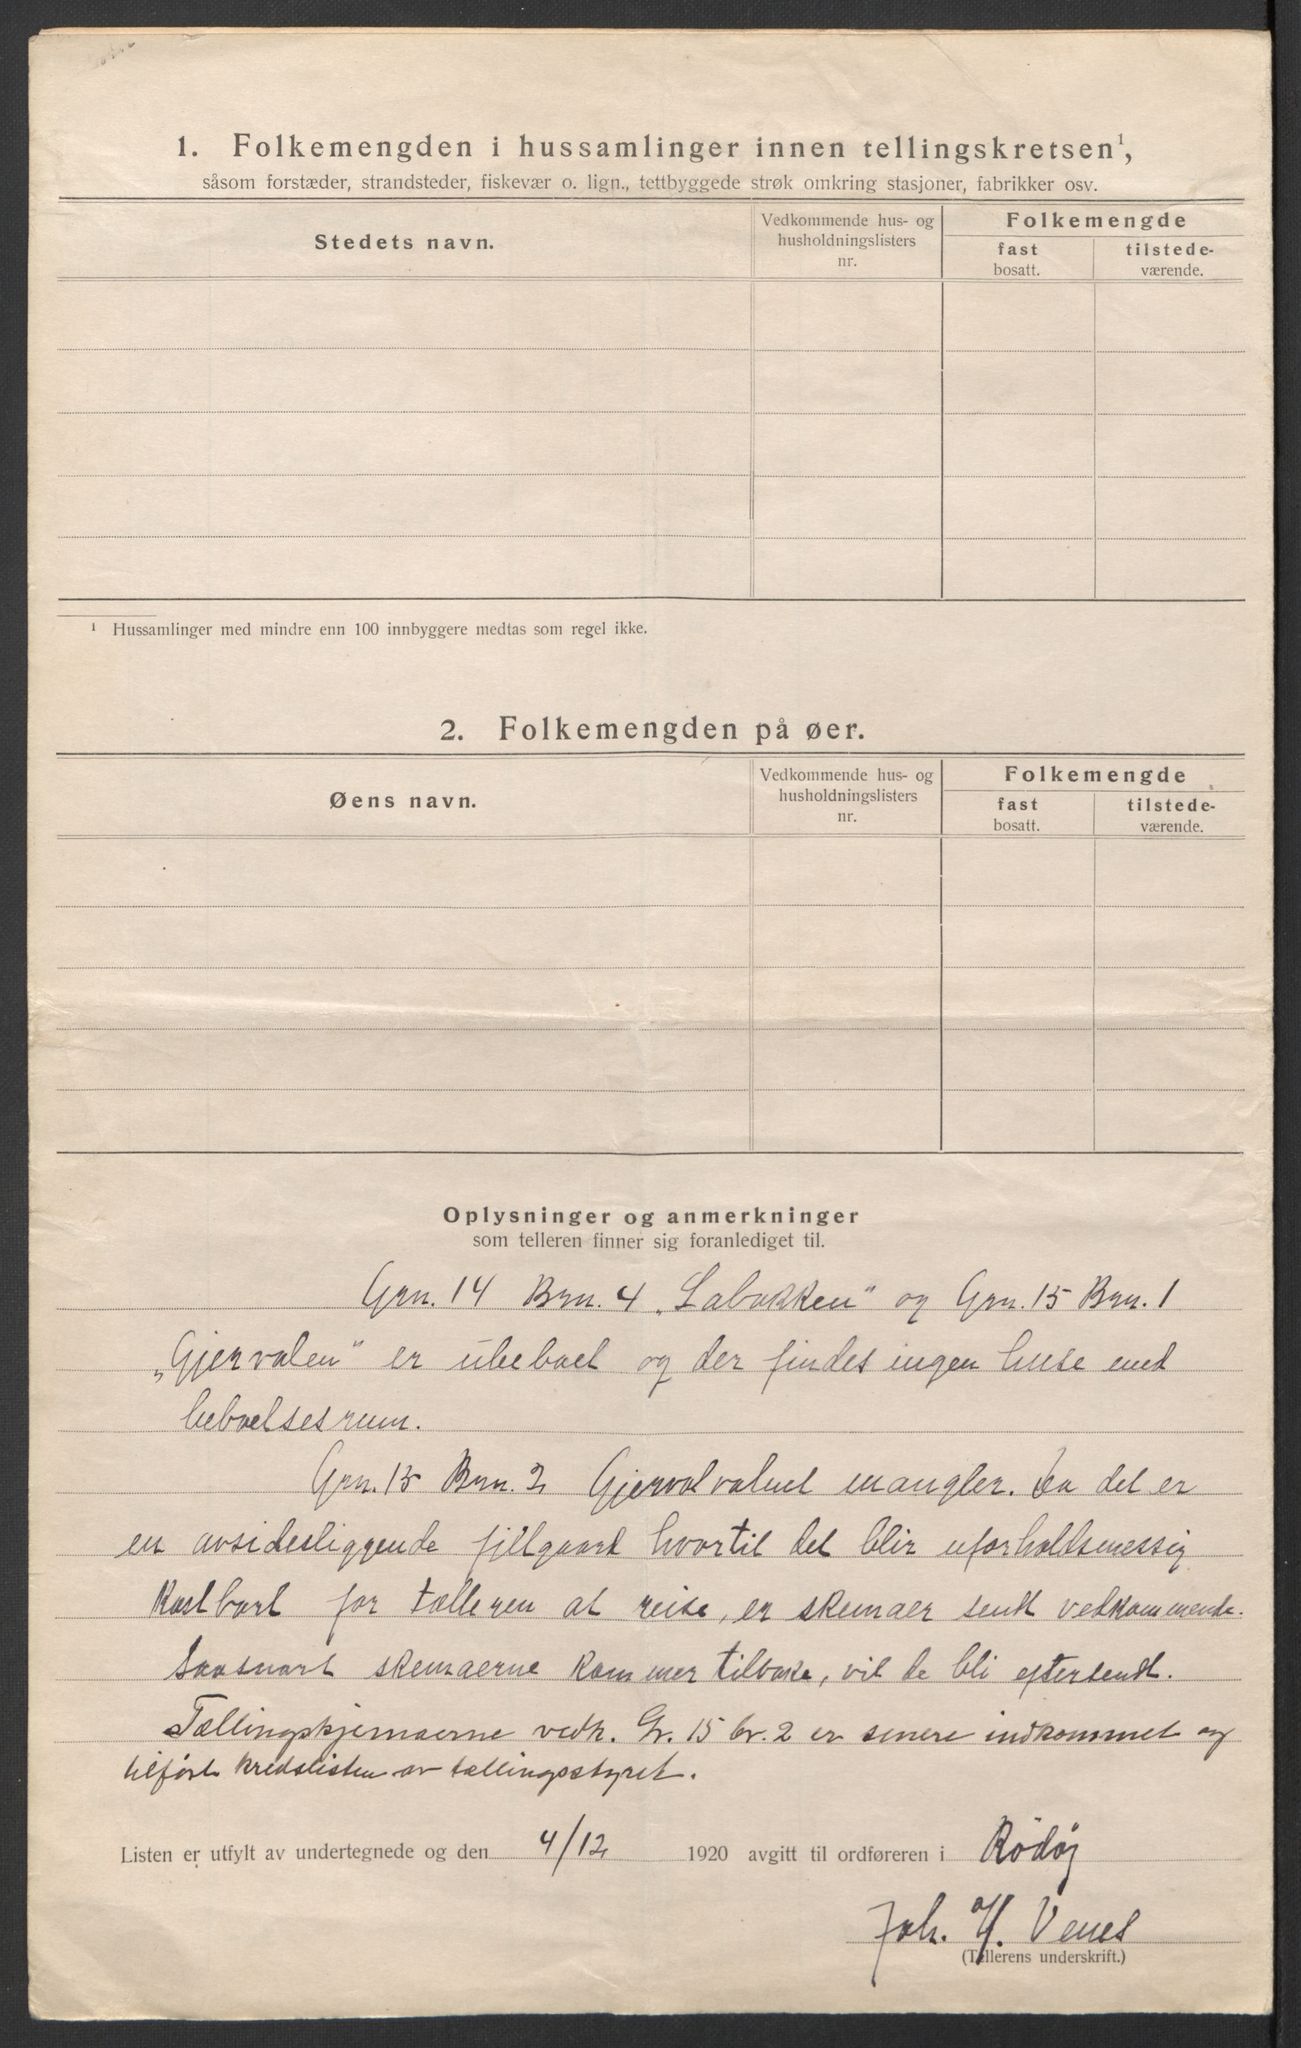 1. Folkemengden i hussamlinger innen tellingskretsen¹,
såsom forstæder, strandsteder, fiskevær o. lign., tettbyggede strøk omkring stasjoner, fabrikker osv.
Stedets navn.
Vedkommende hus- og
husholdningslisters
nr.
Folkemengde
fast
bosatt.
tilstede-
værende.
¹ Hussamlinger med mindre enn 100 innbyggere medtas som regel ikke.
2. Folkemengden på øer.
Øens navn.
Vedkommende hus- og
husholdningslisters
nr.
Folkemengde
fast
bosatt.
tilstede-
værende.
Oplysninger og anmerkninger
som telleren finner sig foranlediget til.
Grn. 14 Brn. 4 „Labakken" og Grn. 15 Brn. 1
„Gjervalen" er ubeboet og der findes ingen huse med
beboelsesrum.
Grn. 15 Brn. 2 Gjervalvatnet mangler. Da det er
en avsidesliggende fjellgaard hvortil det blir uforholdsmessig
kostbart for tælleren at reise, er skemaer sendt vedkommende.
Saasnart skemaerne kommer tilbake, vil de bli eftersendt.
Tællingskjemaerne vedk. Gr. 15 br. 2 er senere indkommet og
tilført kredslisten av tællingsstyret.
Listen er utfylt av undertegnede og den 4/12 1920 avgitt til ordføreren i Rødøy
Joh. H. Venes
(Tellerens underskrift.)